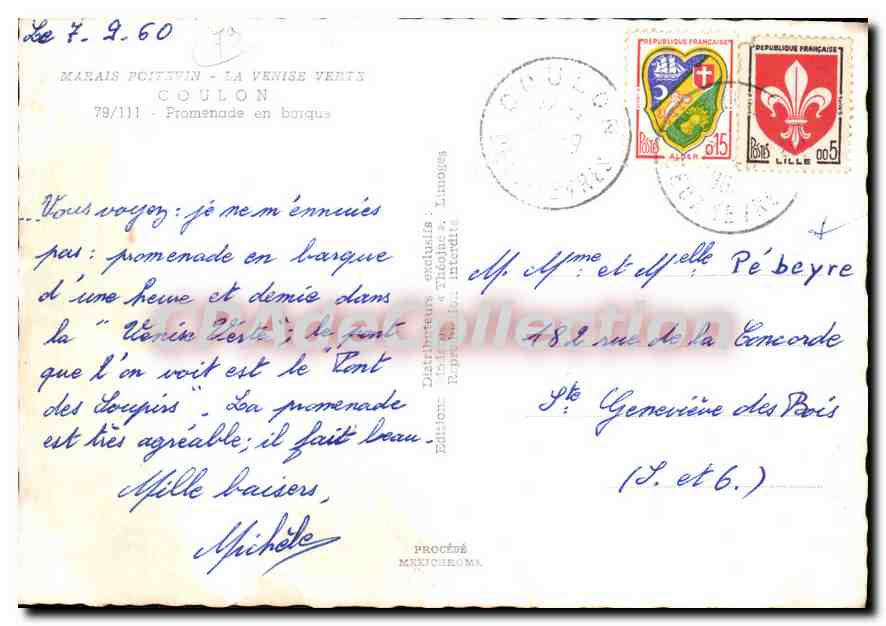 Le 7. 9. 60
79
MARAIS POITEVIN - LA VENISE VERTE
COULON
79/111 - Promenade en barque
Vous voyez : je ne m'ennuies
pas : promenade en barque
d'une heure et demie dans
la "Venise Verte"; le pont
que l'on voit est le "Pont
des Soupirs". La promenade
est très agréable; il fait beau.
Mille baisers,
Michèle
Distributeurs exclusifs :
Editions « Théojac », Limoges
Reproduction interdite
PROCÉDÉ
MEXICHROME
COULON
DEUX SEVRES
REPUBLIQUE FRANÇAISE
POSTES
0F15
ALGER
REPUBLIQUE FRANÇAISE
POSTES
LILLE
0,05
M. Mme et Melle Pébeyre
182 rue de la Concorde
Ste Geneviève des Bois
(S. et O.)
CPAdeCollection